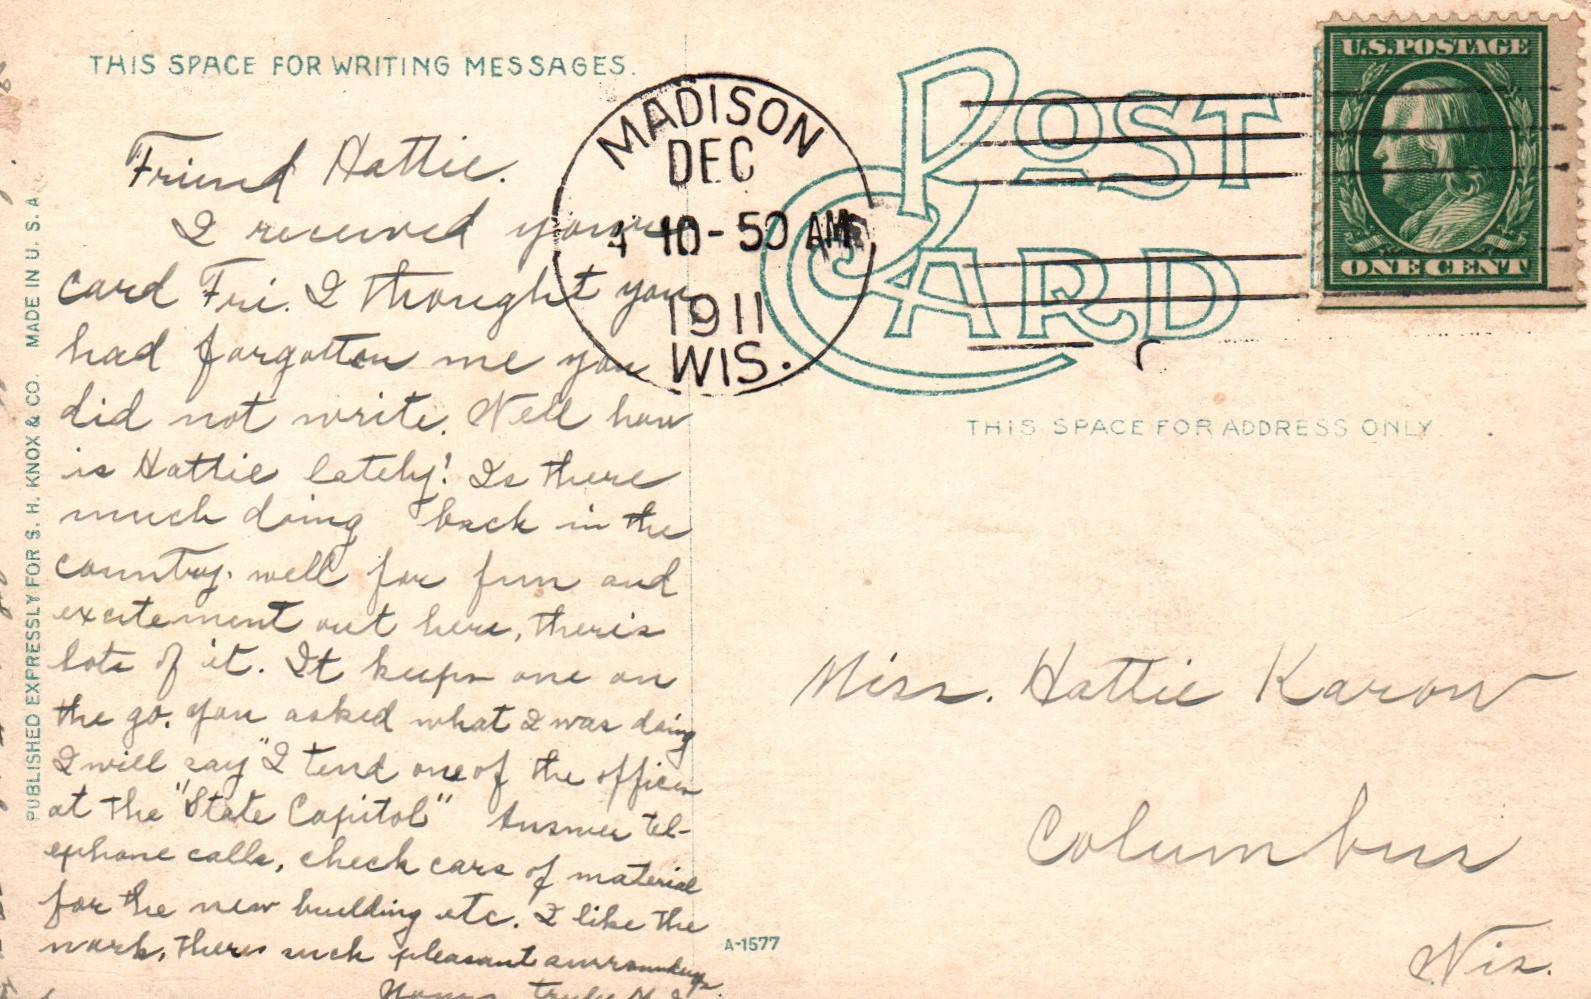 THIS SPACE FOR WRITING MESSAGES.
Friend Hattie.
I received your
card Fri. I thought you
had forgotten me you
did not write. Well how
is Hattie lately! Is there
much doing back in the
country. well for fun and
excitement out here, theris
lots of it. It keeps one on
the go. you asked what I was doing
I will say "I tend one of the offices
at the "State Capitol" Answer tel-
ephone calls, check cars of material
for the new building etc. I like the
work, theres such pleasant surroundings.
Yours truly
PUBLISHED EXPRESSLY FOR S. H. KNOX & CO. MADE IN U. S. A.
MADISON
DEC
4 10-50 AM
1911
WIS.
POST
CARD
U.S.POSTAGE
ONE CENT
THIS SPACE FOR ADDRESS ONLY.
Miss. Hattie Karow
Columbus
Wis.
A-1577